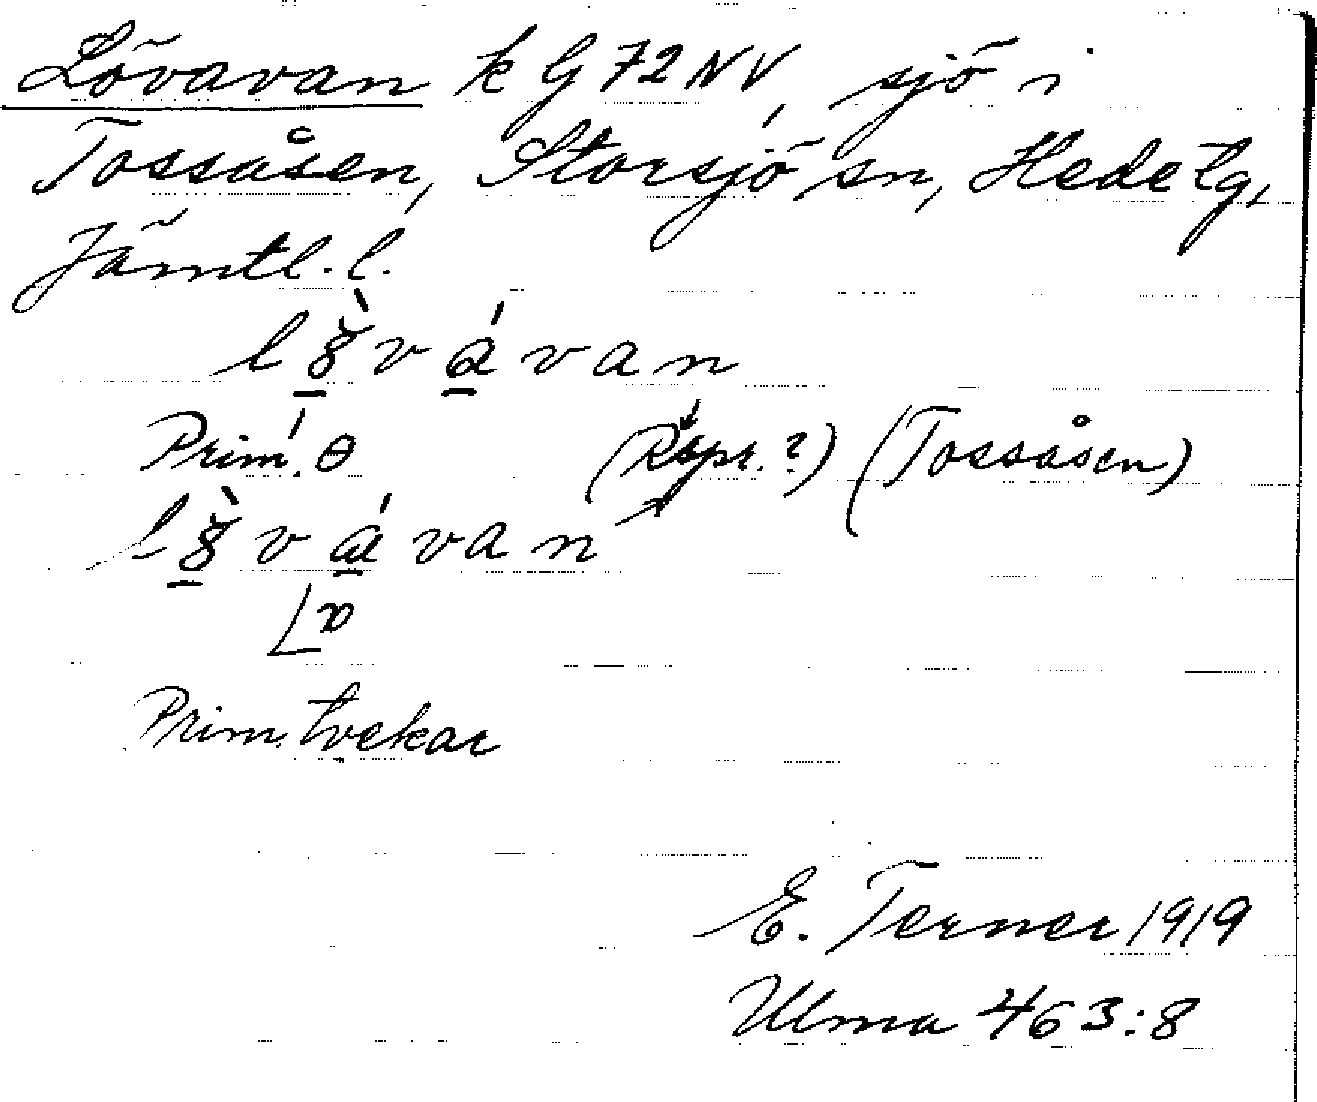 Lövavan k G 72 NV, sjö i
Tossåsen, Storsjö sn, Hede tg,
Jämtl. l.
l8̀vávan
Prim. θ (Rspr.?) (Tossåsen)
l8̀vávan
Prim. tvekar
E. Terner 1919
Ulma 463:8